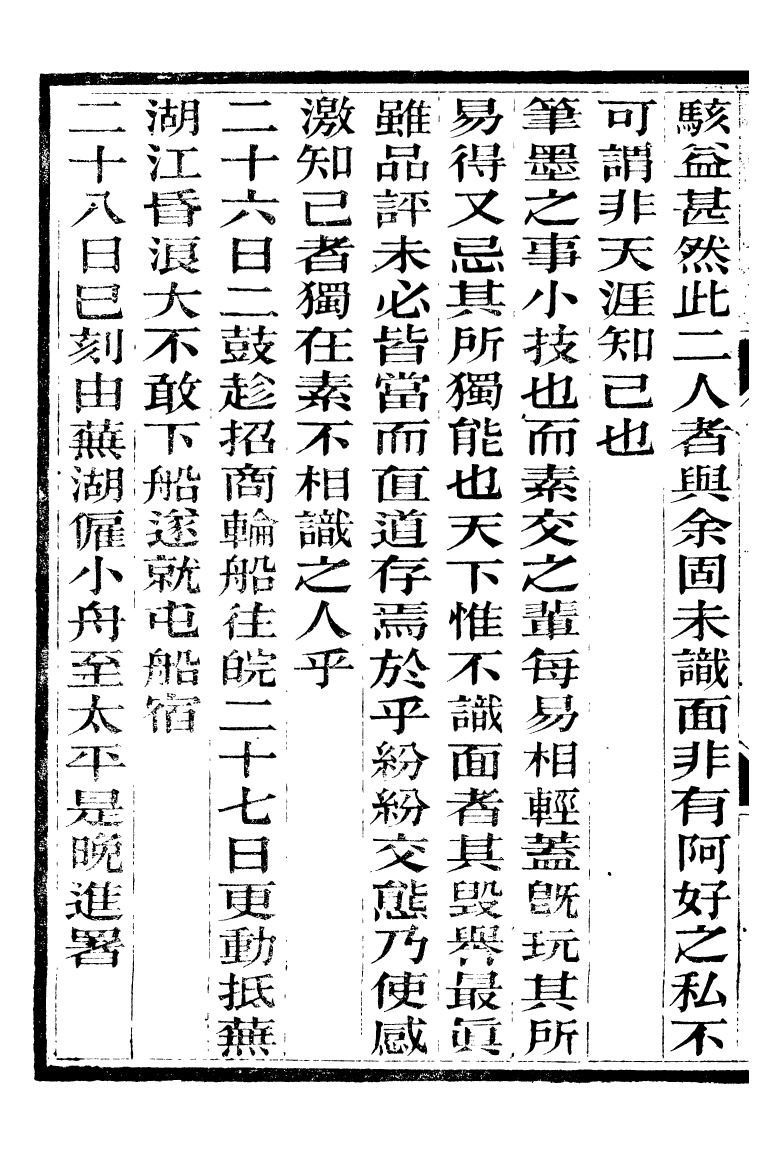 駭益甚然此二人者與余固未識面非有阿好之私不
可謂非天涯知己也
筆墨之事小技也而素交之輩每易相輕蓋旣玩其所
易得又忌其所獨能也天下惟不識面者其毀譽最眞
雖品評未必皆當而直道存焉於乎紛紛交態乃使感
激知己者獨在素不相識之人乎
二十六日二鼓趁招商輪船往皖二十七日更動抵蕪
湖江昏浪大不敢下船遂就屯船宿
二十八日巳刻由蕪湖僱小舟至太平是晚進署